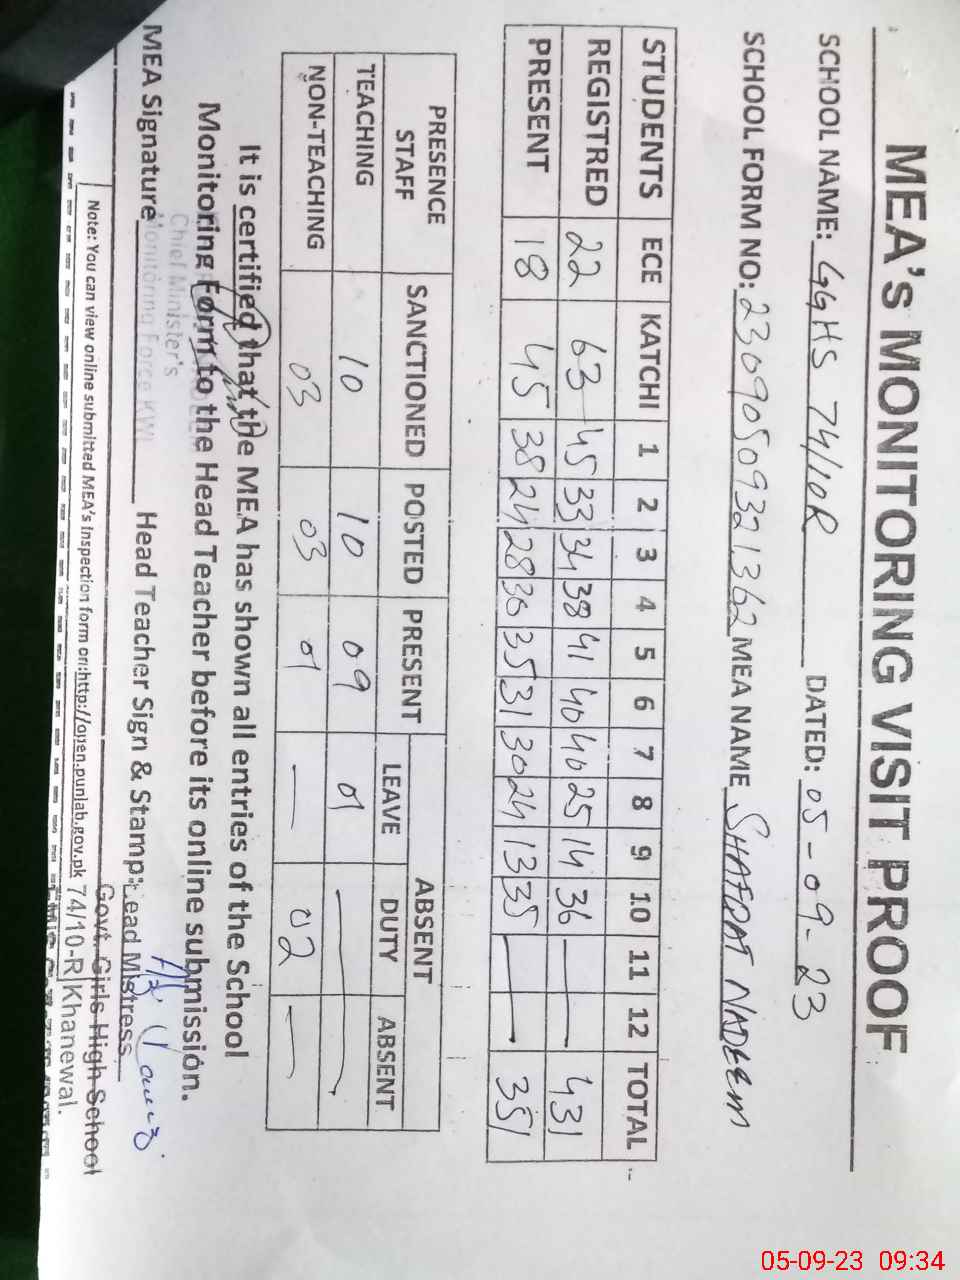 MEA's MONITORING VISIT PROOF
SCHOOL NAME: GGHS 74/10R DATED: 05-09-23
SCHOOL FORM NO: 23090509321362 MEA NAME SHAFQAT NADEEM
STUDENTS ECE KATCHI 1 2 3 4 5 6 7 8 9 10 11 12 TOTAL
REGISTRED 22 63 45 33 34 38 41 40 40 25 14 36 — — 431
PRESENT 18 45 38 24 28 30 35 31 30 24 13 35 — — 351
PRESENCE STAFF SANCTIONED POSTED PRESENT ABSENT
LEAVE DUTY ABSENT
TEACHING 10 10 09 01 — —
NON-TEACHING 03 03 01 — 02 —
It is certified that the MEA has shown all entries of the School
Monitoring Form to the Head Teacher before its online submission.
Chief Minister's
Monitoring Force KWL
MEA Signature Head Teacher Sign & Stamp:
Head Mistress
Govt. Girls High School
74/10-R Khanewal.
Note: You can view online submitted MEA's Inspection form on:http://open.punlab.gov.pk
05-09-23 09:34